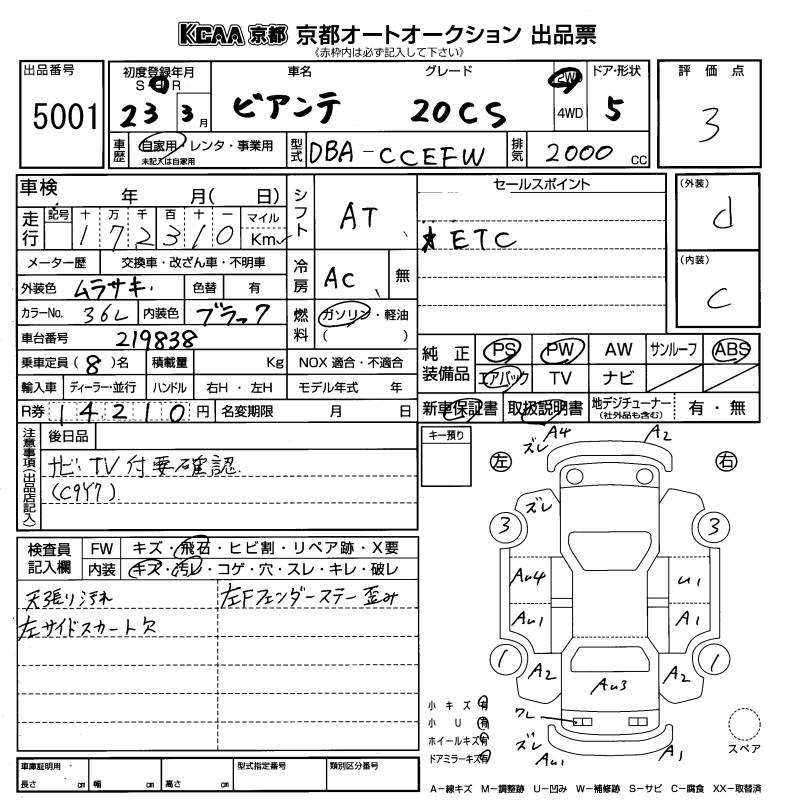 KCAA 京都 京都オートオークション 出品票
《赤枠内は必ず記入して下さい》
出品番号 5001
初度登録年月 S H R 23 3月
車名 ビアンテ
グレード 20CS
2W 4WD
ドア・形状 5
評価点 3
車歴 自家用・レンタ・事業用 未記入は自家用
型式 DBA-CCEFW
排気 2000 CC
車検 年 月( 日)
シフト AT
セールスポイント
(外装) d
走行 記号 十 万 千 百 十 一 マイル Km
172310
★ETC
(内装) C
メーター歴 交換車・改ざん車・不明車
冷房 AC 無
外装色 ムラサキ 色替 有
カラーNo. 36L 内装色 ブラック
燃料 ガソリン・軽油 ( )
車台番号 219838
純正装備品 PS PW AW サンルーフ ABS
エアバック TV ナビ
乗車定員(8)名 積載量 Kg NOX 適合・不適合
輸入車 ディーラー・並行 ハンドル 右H・左H モデル年式 年
R券 14210円 名変期限 月 日
新車保証書 取扱説明書 地デジチューナー (社外品も含む) 有・無
注意事項(出品店記入) 後日品
ナビ、TV付要確認
(C9Y7)
キー預り
左 右
ズレ A4 A2
ズレ
3 3
Au4 u1
Au1 A1
1 1
A2 A2
Au3
ワレ
ズレ Au1 A1
スペア
検査員記入欄 FW キズ・飛石・ヒビ割・リペア跡・X要
内装 キズ・汚レ・コゲ・穴・スレ・キレ・破レ
天張り汚れ 左Fフェンダーステー歪み
左サイドスカート欠
小キズ有
小U有
ホイールキズ有
ドアミラーキズ有
車庫証明用 長さ cm 幅 cm 高さ cm 型式指定番号 類別区分番号
A−線キズ M−調整跡 U−凹み W−補修跡 S−サビ C−腐食 XX−取替済